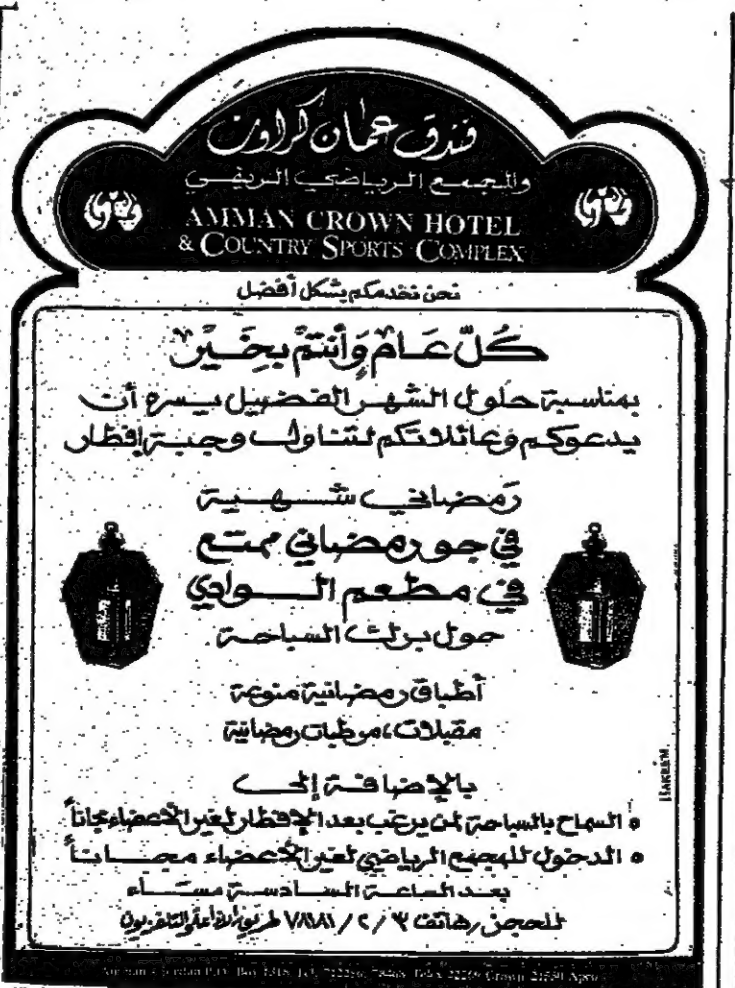 فندق عمان كراون
والمجمع الرياضي الريفي
AMMAN CROWN HOTEL
& COUNTRY SPORTS COMPLEX
نحن نخدمكم بشكل أفضل
كُلّ عَام وَأنتمْ بِخَيْر
بمناسبة حلول الشهر الفضيل يسره أن
يدعوكم وعائلاتكم لتناول وجبة إفطار
رَمضاني شهية
في جو رمضاني ممتع
في مطعم الوادي
حول برك السباحة
أطباق رمضانية منوعة
مقبلات، مرطبات رمضانية
بالإضافة إلى
• السماح بالسباحة لمن يرغب بعد الإفطار لغير الأعضاء مجاناً
• الدخول للمجمع الرياضي لغير الأعضاء مجاناً
بعد الساعة السادسة مساء
للحجز، هاتف ٣ / ٢ / ٧٨١٨١ طريق الإذاعة والتلفزيون
HAKEEM
Amman - Jordan P.O. Box